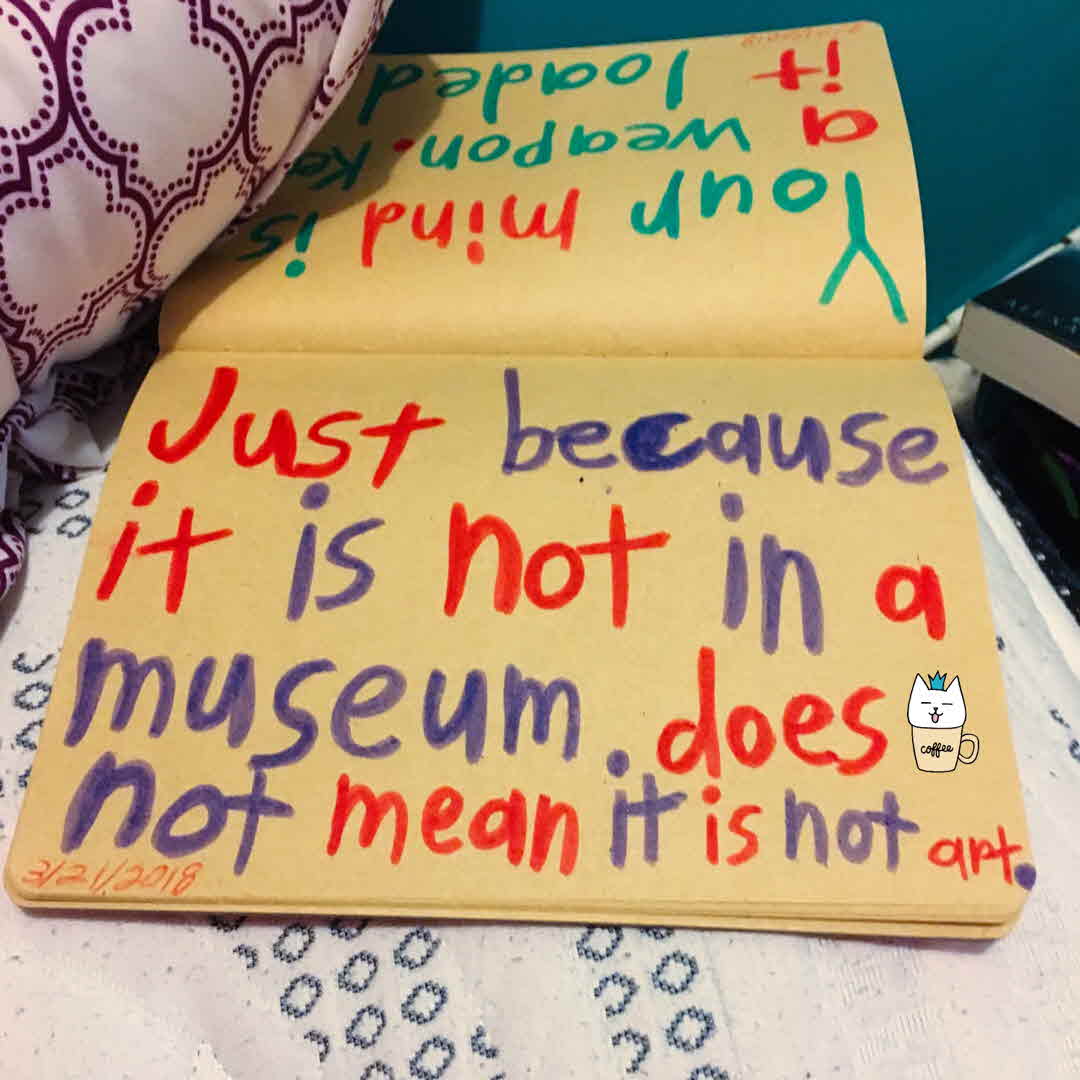 Just because
it is not in a
museum. does
coffee
not mean it is not art.
3/21/2018
Your mind is
a weapon.
it loaded